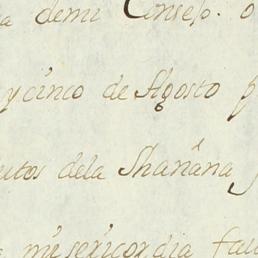 a demi Consejo. o
y cinco de Agosto p
dela Mañana
misericordia fal